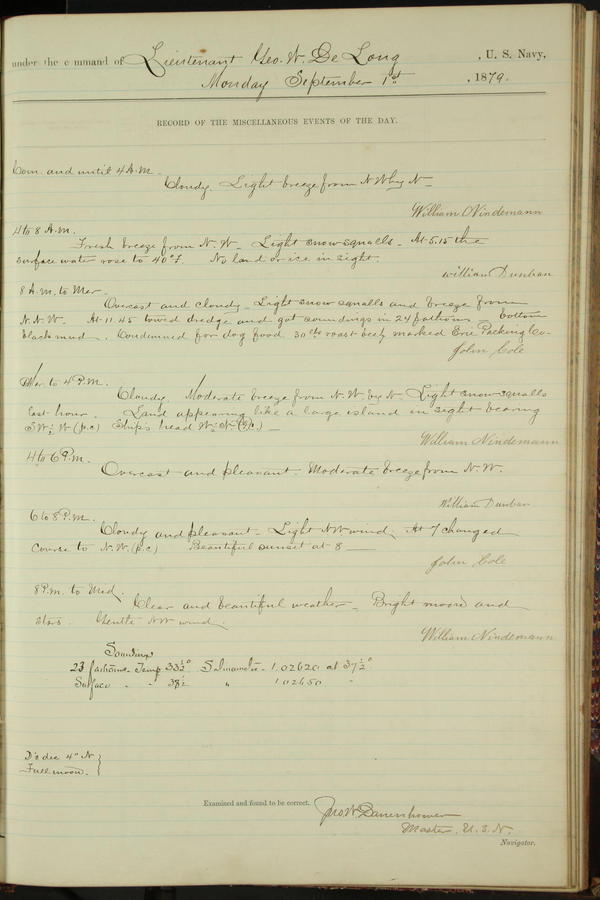 under the command of Lieutenant Geo. W. De Long , U. S. Navy,
Monday September 1st , 1879.
RECORD OF THE MISCELLANEOUS EVENTS OF THE DAY.
Com. and until 4 A.M.
Cloudy. Light breeze from N.W. by N.
William Nindemann
4 to 8 A.m.
Fresh breeze from N. W. Light snow squalls. At 5.15 the
surface water rose to 40° F. No land or ice in sight.
William Dunbar
8 A.m. to Mer.
Overcast and cloudy. Light snow squalls and breeze from
N.N.W. At 11.45 towed dredge and got soundings in 24 fathoms. Bottom
black mud. Condemned for dog food 30 lbs roast beef marked Erie Packing Co.
John Cole
Mer. to 4 P.M.
Cloudy. Moderate breeze from N.W. by N. Light snow squalls
last hour. Land appearing like a large island in sight bearing
(p.c) Ship's head
William Nindemann
4 to 6 P.m.
Overcast and pleasant. Moderate breeze from N.W.
William Dunbar
6 to 8 P.M.
Cloudy and pleasant. Light NW wind. At 7 changed
course to N.W. (p.c) Beautiful sunset at 8
John Cole
8 P.m. to Mid.
Clear and beautiful weather. Bright moon and
stars. Gentle NW wind.
William Nindemann
Soundings
23 fathoms Temp 33½° Salinometer 1.02620 at 37½°
Surface " " 38½ " 1.02650 "
D's dec 4° N
Full moon.
Examined and found to be correct.
Jno. W. Danenhower
Master, U.S.N.
Navigator.